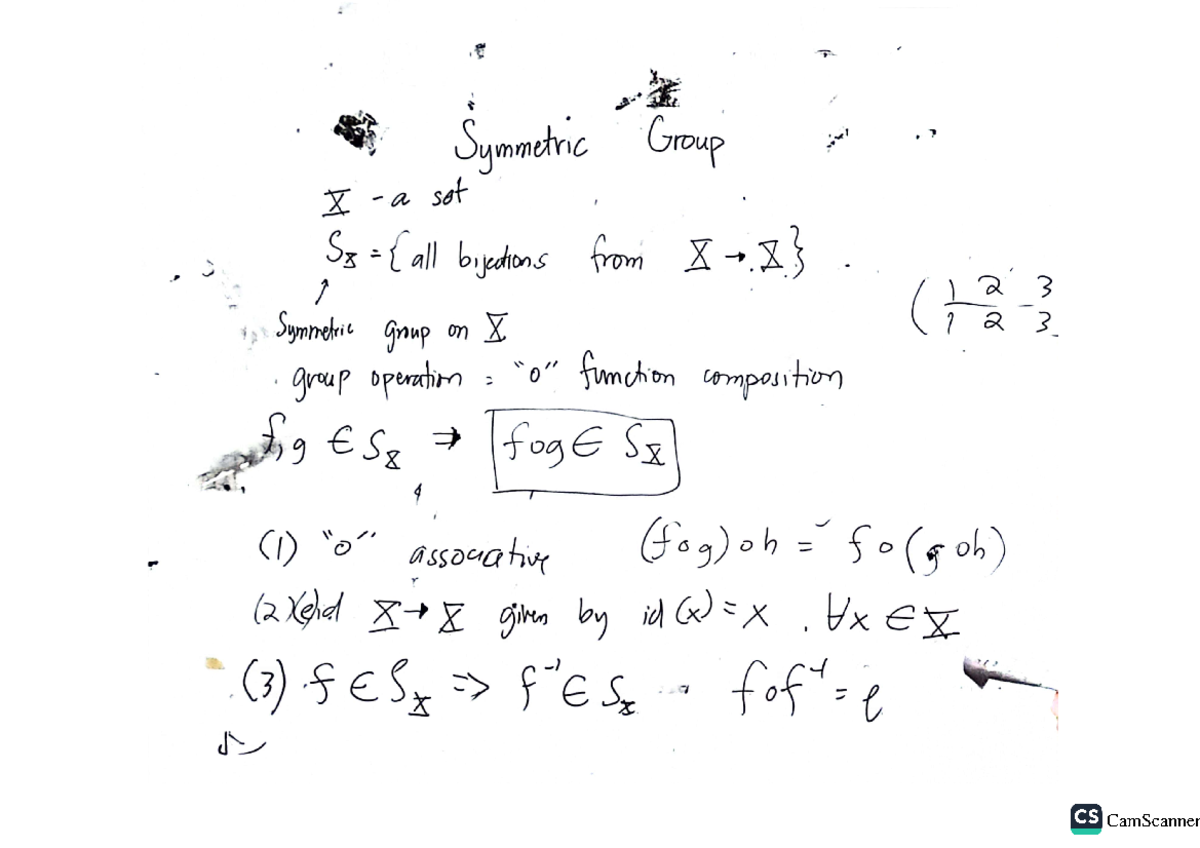 Symmetric Group
X - a set
S_X = {all bijections from X → X}
↑
Symmetric group on X
( 1 2 3
1 2 3
group operation = "o" function composition
f, g ∈ S_X ⇒ fog ∈ S_X
(1) "o" associative (fog)oh = fo(goh)
(2)(e)id X → X given by id(x) = x . ∀x ∈ X
(3) f ∈ S_X => f⁻¹ ∈ S_X fof⁻¹ = e
CS CamScanner